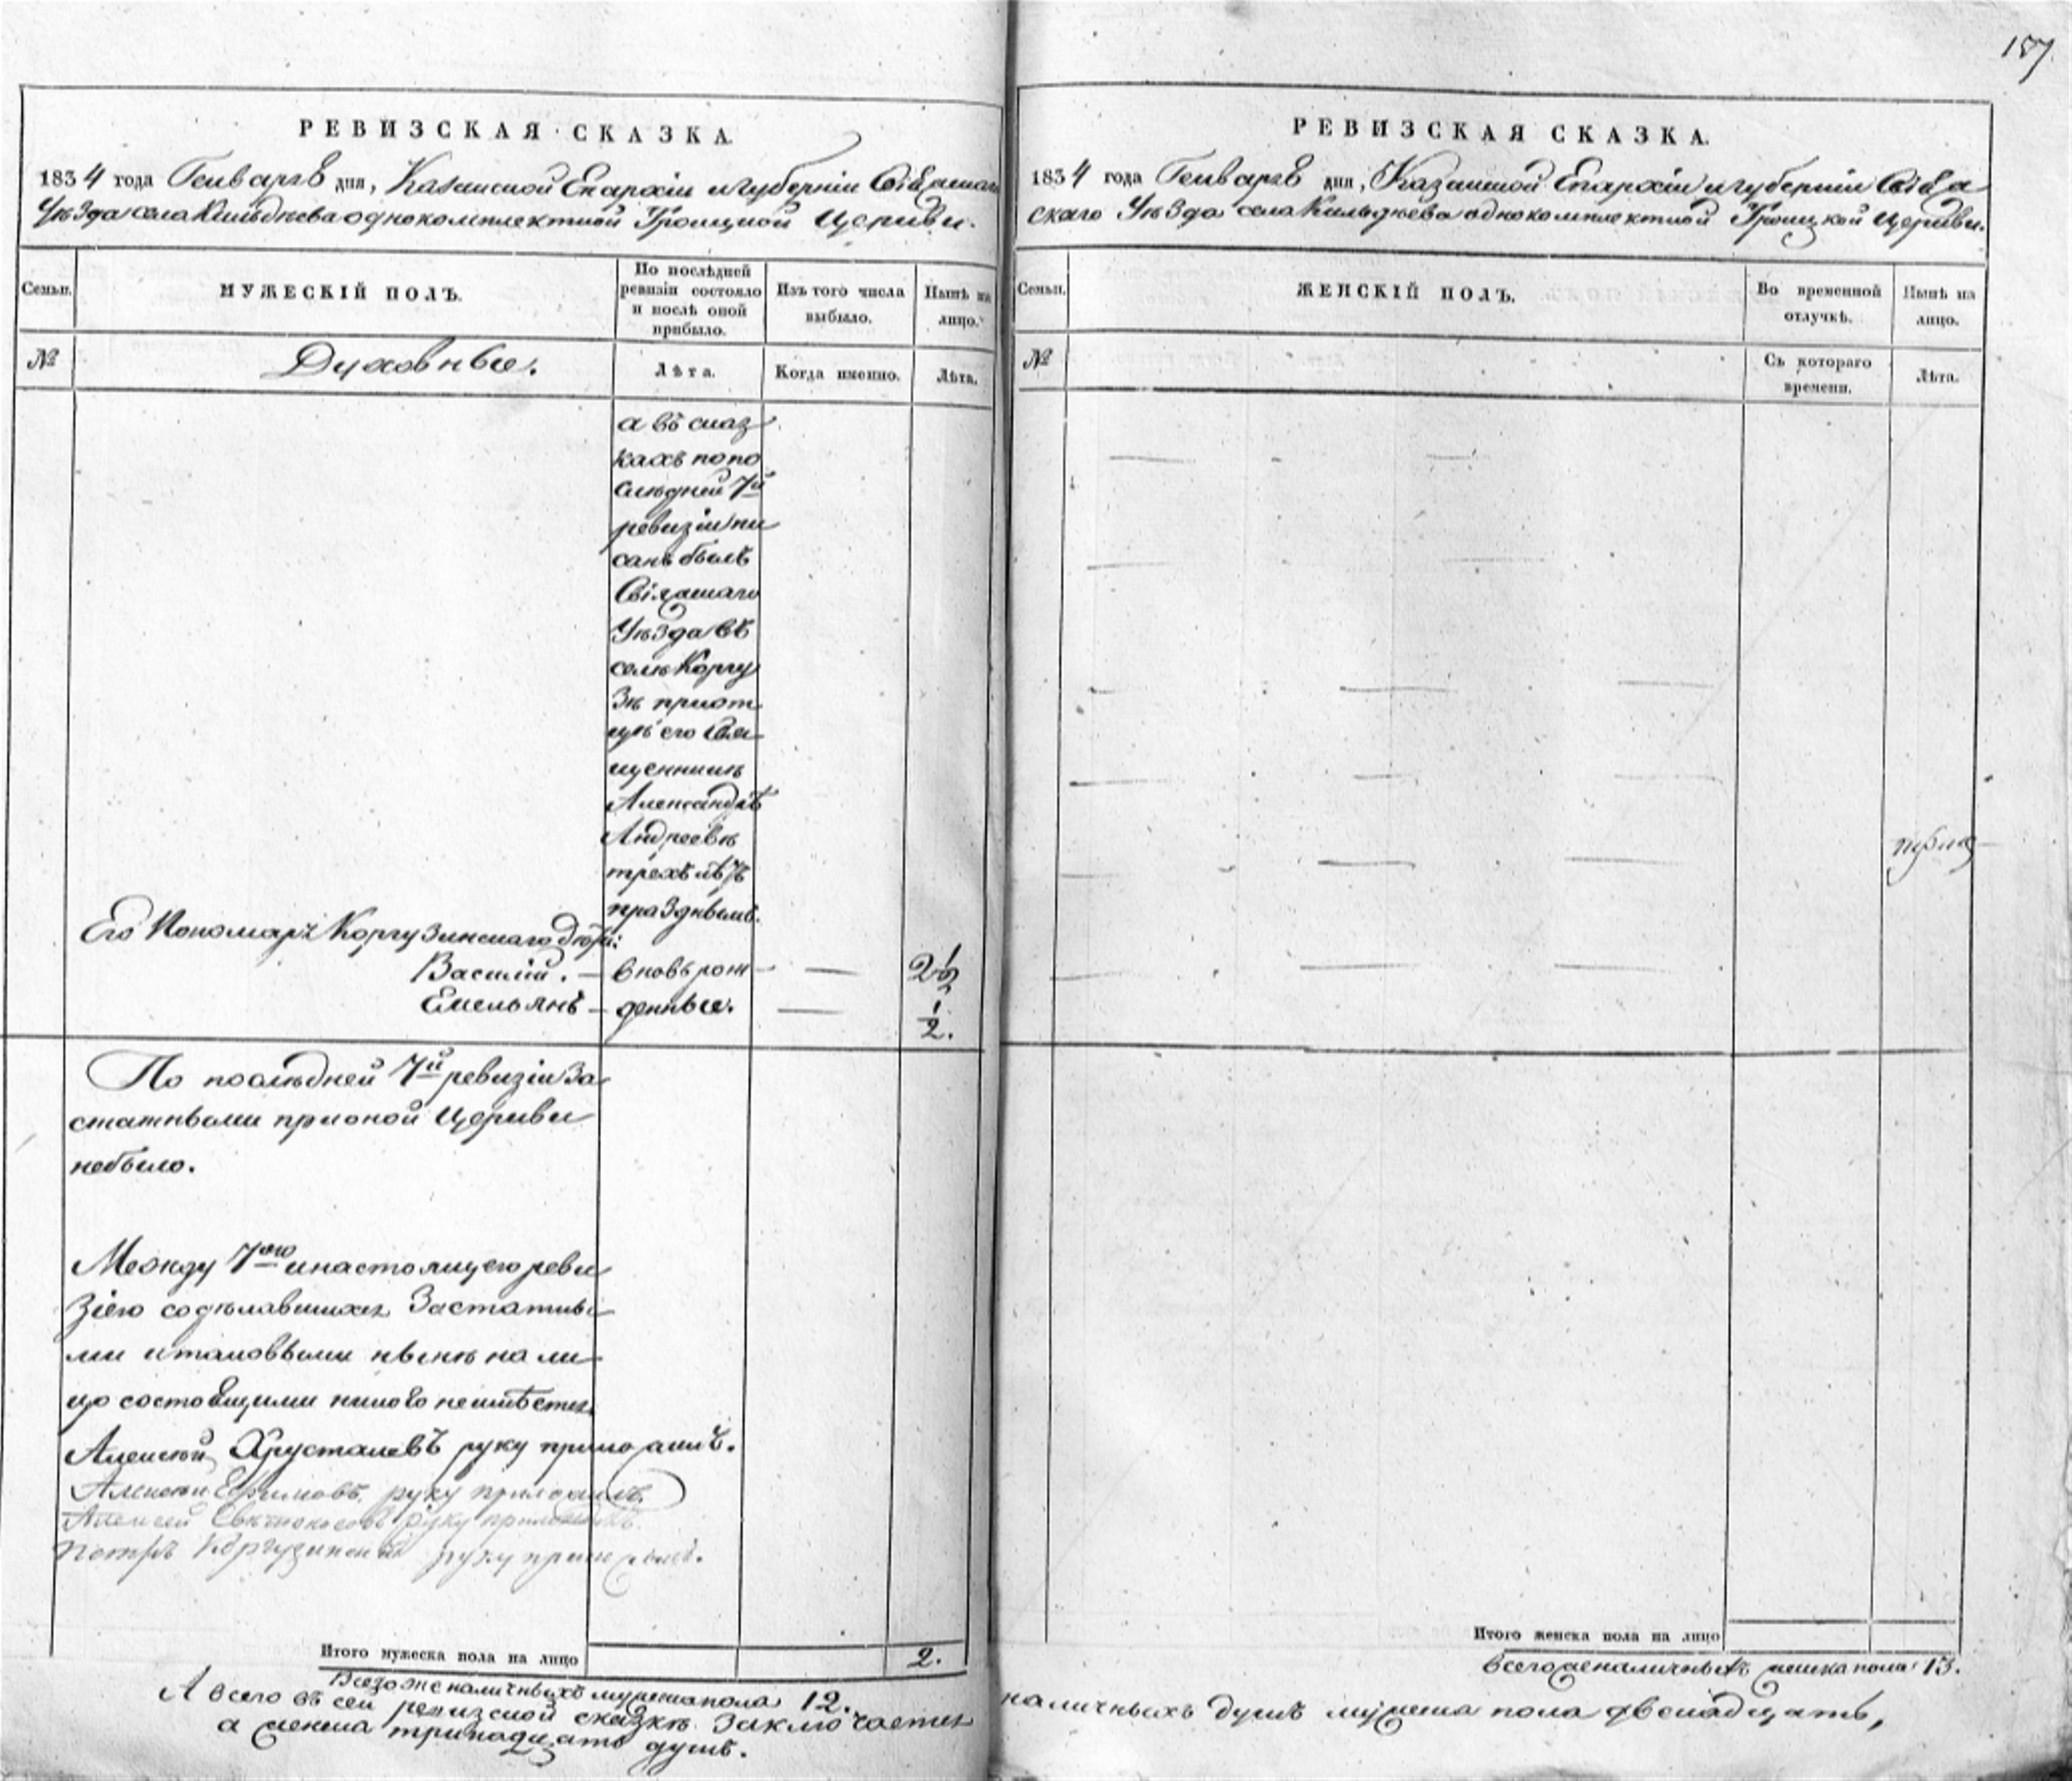 187
РЕВИЗСКАЯ СКАЗКА.
1834 года Генваря дня, Казанской Епархіи и губерніи Свіяжскаго
Уѣзда села Кильдѣева однокомплектной Троицкой Церкви.
Семьи.
МУЖЕСКІЙ ПОЛЪ.
По послѣдней ревизіи состояло и послѣ оной прибыло.
Изъ того числа выбыло.
Нынѣ на лицо.
№
Духовные.
Лѣта.
Когда именно.
Лѣта.
а въ сказ
кахъ по по
слѣдней 7й
ревизіи пи
санъ былъ
Свіяжскаго
Уѣзда въ
селѣ Коргу
зѣ при от
цѣ его Свя
щенникѣ
Александрѣ
Андреевѣ
трехъ лѣтъ
празднымъ.
Его Пономаря Коргузинскаго дѣти:
Василій. — вновь рож — — 2 1/2
Емельянъ — денные. — 1/2.
По послѣдней 7й ревизіи за
статными при оной Церкви
небыло.
Между 7ою и настоящею реви
зіею содѣлавшихся Застатны
ми и таковыми нынѣ на ли
цо состоящими никого неимѣется
Алексѣй Хрусталевъ руку приложилъ.
Алексѣй Ефимовъ руку приложилъ.
Алексей руку приложилъ.
Петръ Коргузинскій руку приложилъ.
Итого мужеска пола на лицо
2.
Всего же наличныхъ мужеска пола 12.
А всего въ сей ревизской сказкѣ заключается
а женска тринадцать душъ.
РЕВИЗСКАЯ СКАЗКА.
1834 года Генваря дня, Казанской Епархіи и губерніи Свіяж
скаго Уѣзда села Кильдѣева однокомплектной Троицкой Церкви.
Семьи.
ЖЕНСКІЙ ПОЛЪ.
Во временной отлучкѣ.
Нынѣ на лицо.
№
Съ котораго времени.
Лѣта.
Итого женска пола на лицо
Всего же наличныхъ женска пола 13.
наличныхъ душъ мужеска пола двенадцать,